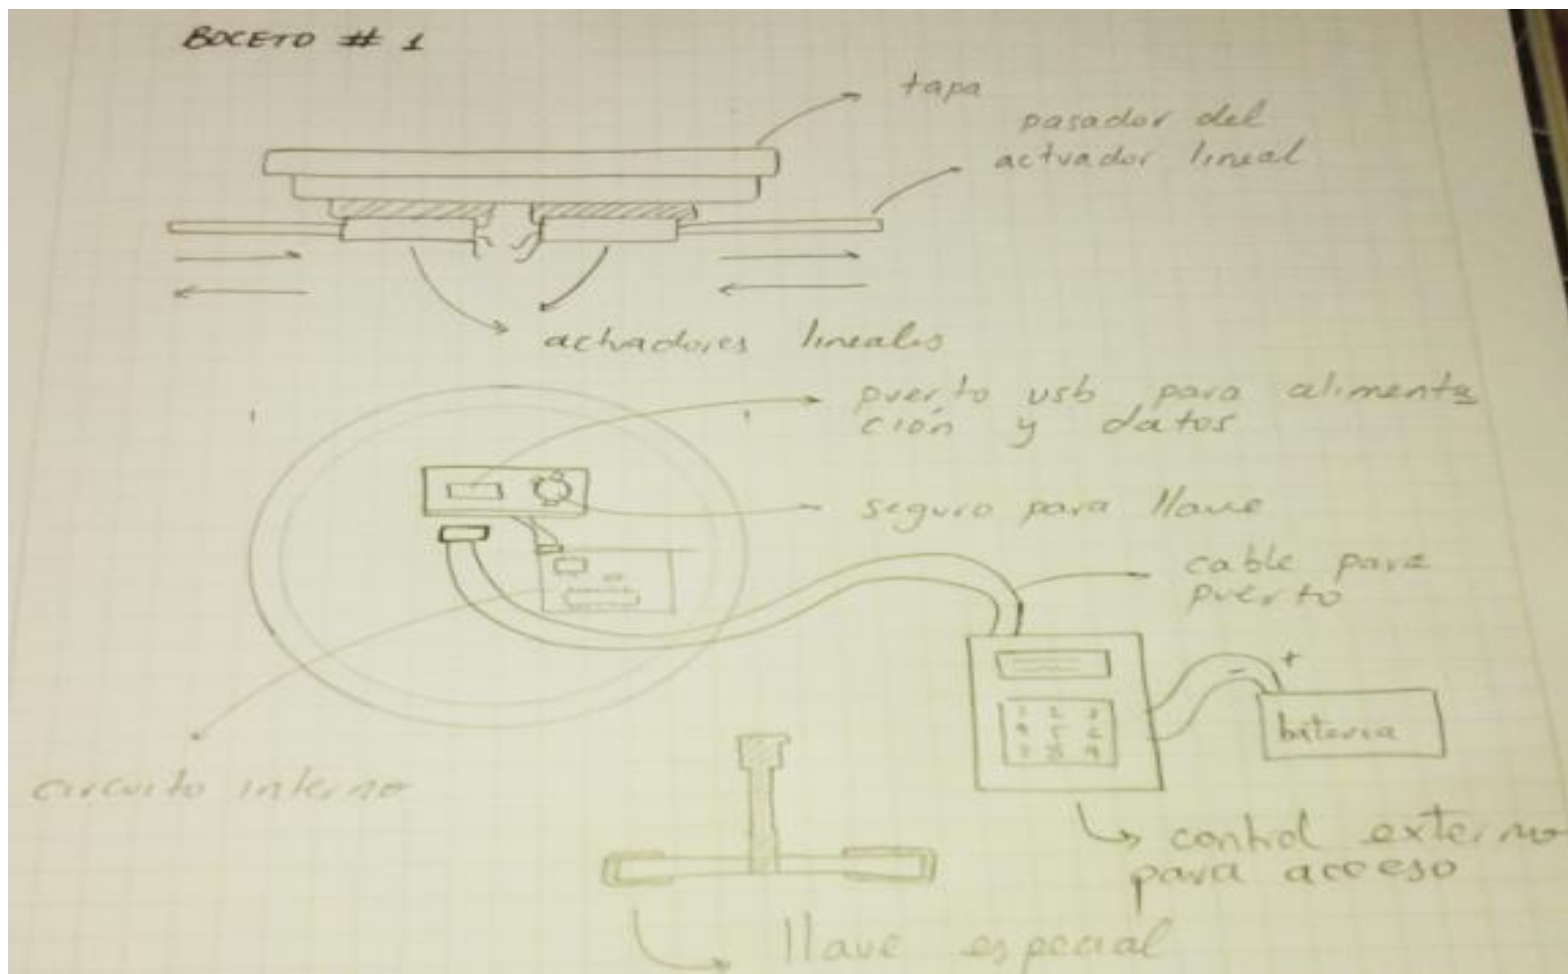 BOCETO # 1
tapa
pasador del
actuador lineal
actuadores lineales
puerto usb para alimenta
ción y datos
seguro para llave
cable para
puerto
+
-
batería
circuito interno
control externo
para acceso
llave especial